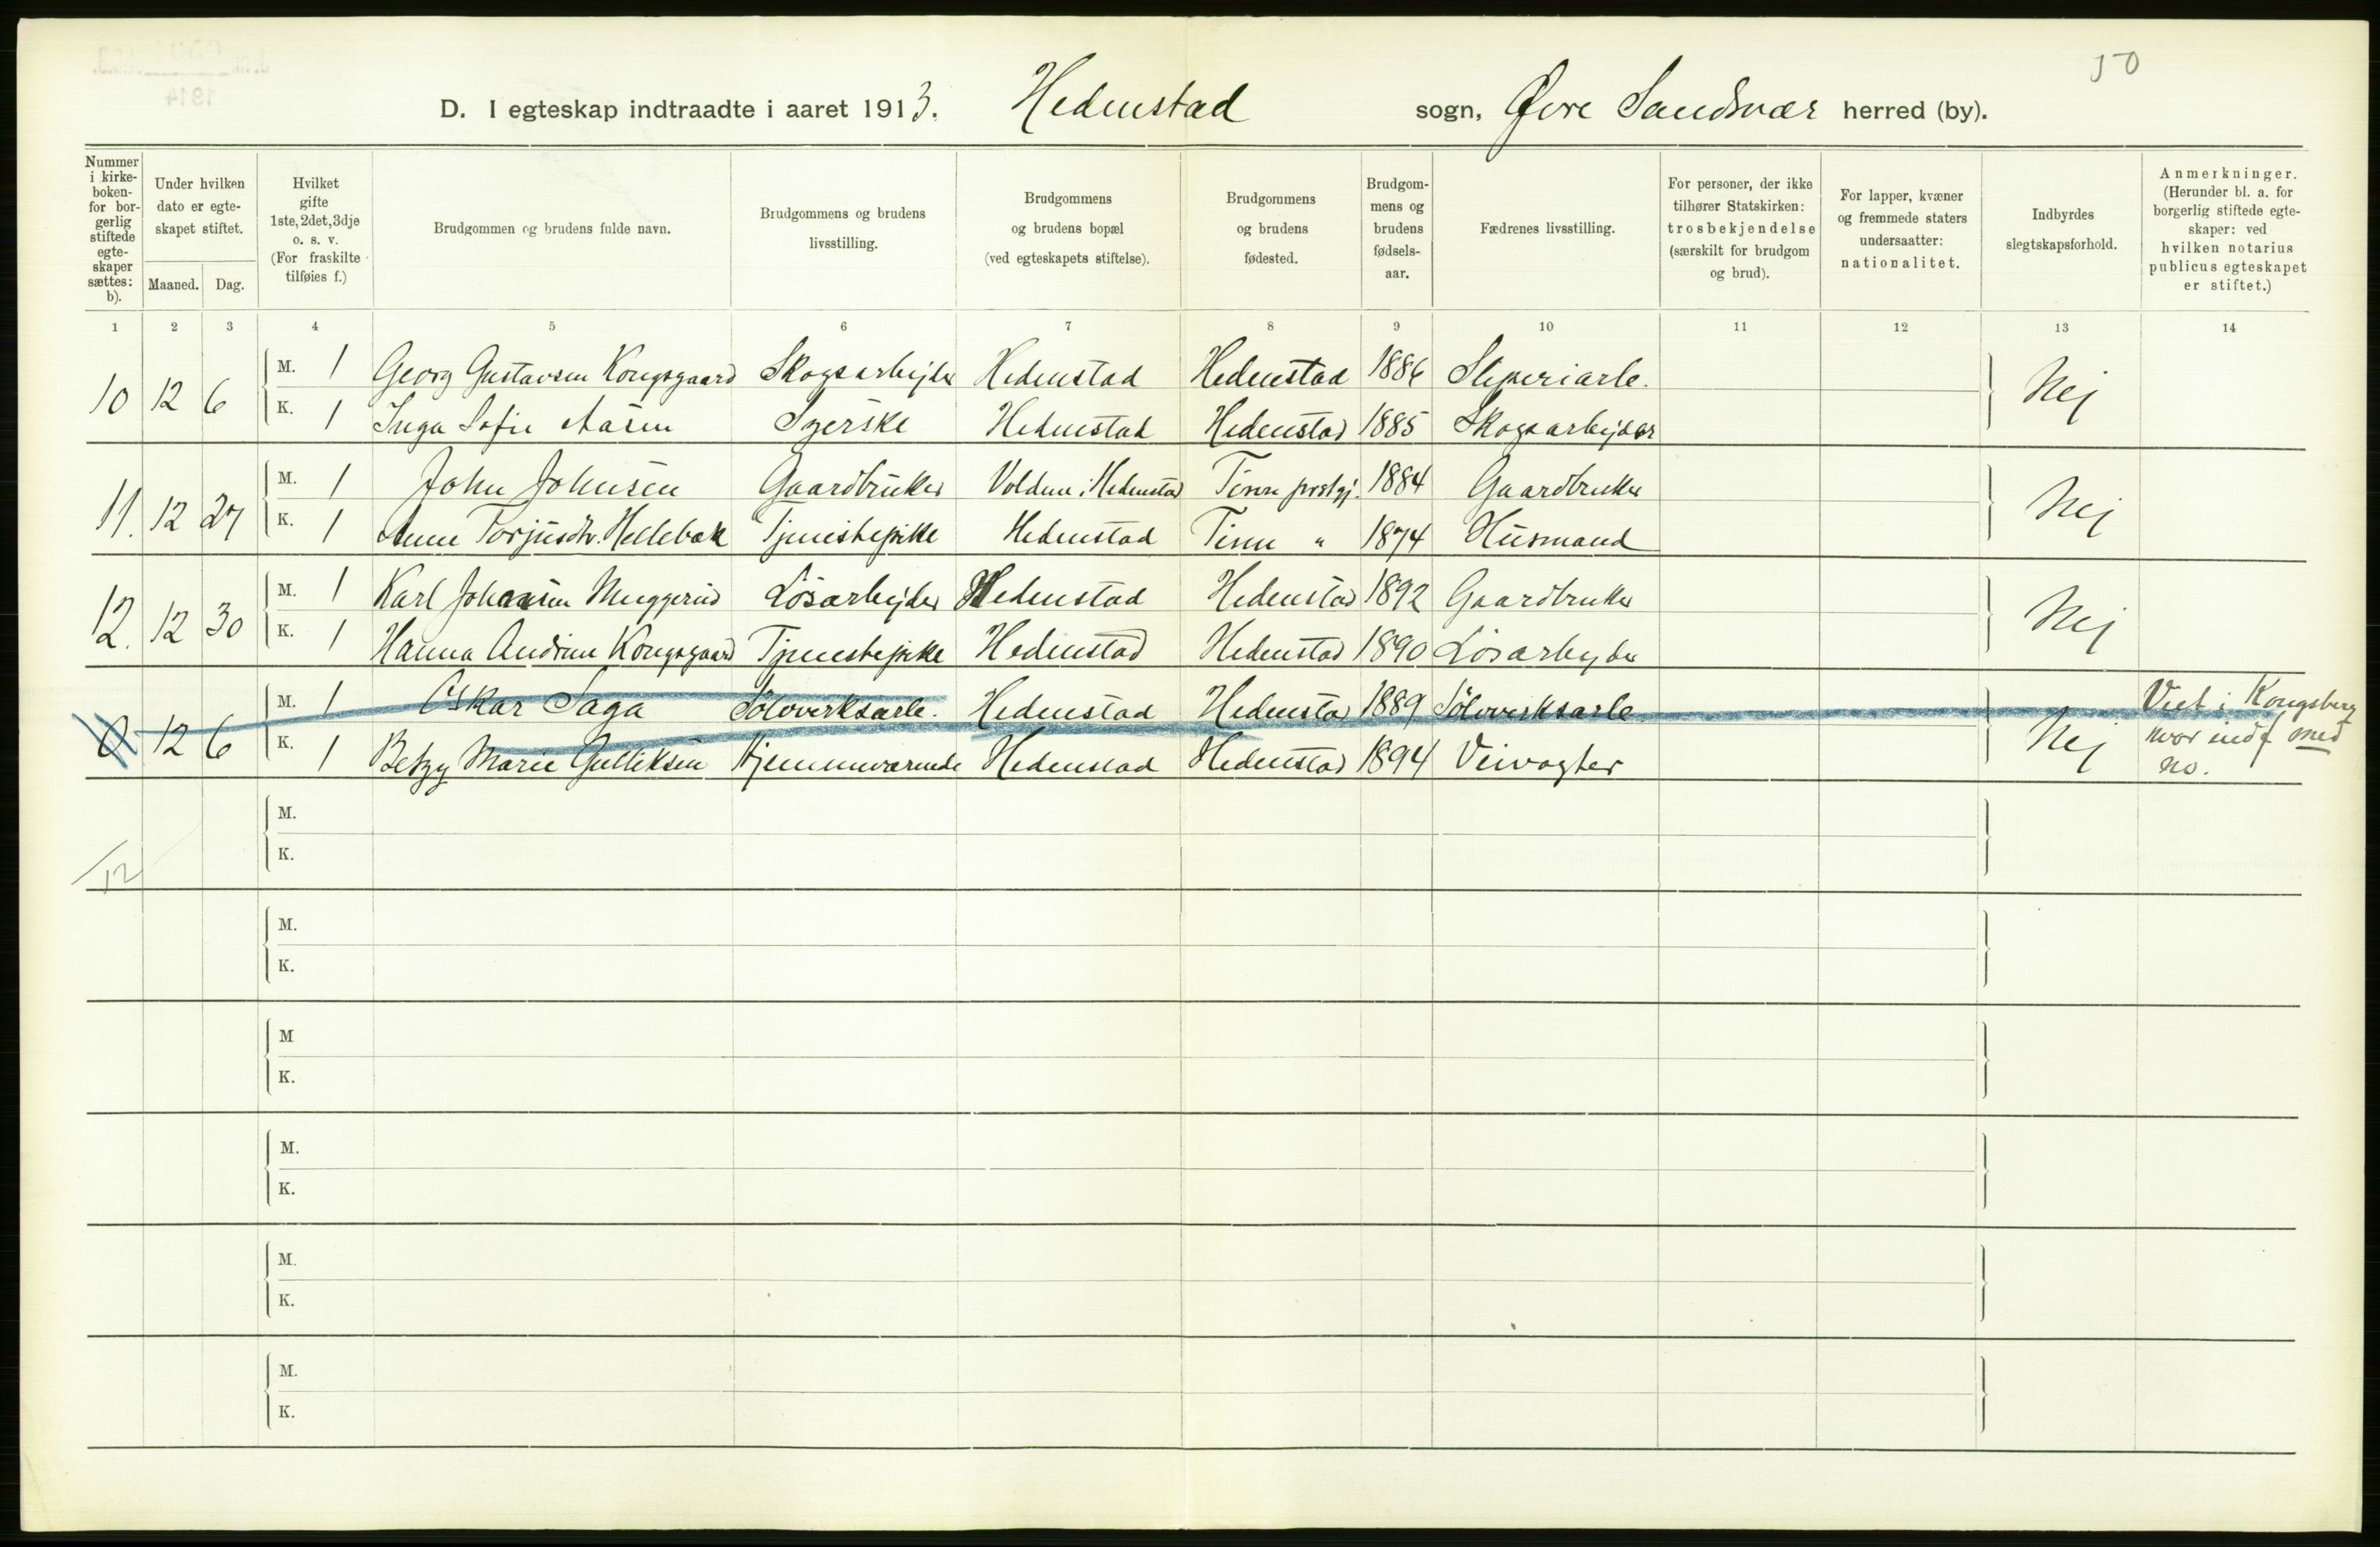 50
D. I egteskap indtraadte i aaret 1913. Hedenstad sogn, Øvre Sandsvær herred (by).
Nummer i kirke-boken- for bor-gerlig stiftede egte-skaper sættes: b).
Under hvilken dato er egte-skapet stiftet.
Maaned. Dag.
Hvilket gifte 1ste, 2det, 3dje o. s. v. (For fraskilte tilføies f.)
Brudgommen og brudens fulde navn.
Brudgommens og brudens livsstilling.
Brudgommens og brudens bopæl (ved egteskapets stiftelse).
Brudgommens og brudens fødested.
Brudgom-mens og brudens fødsels-aar.
Fædrenes livsstilling.
For personer, der ikke tilhører Statskirken: trosbekjendelse (særskilt for brudgom og brud).
For lapper, kvæner og fremmede staters undersaatter: nationalitet.
Indbyrdes slegtskapsforhold.
Anmerkninger. (Herunder bl. a. for borgerlig stiftede egte-skaper: ved hvilken notarius publicus egteskapet er stiftet.)
1 2 3 4 5 6 7 8 9 10 11 12 13 14
M. 1 Georg Gustavsen Kongsgaard Skogsarbejder Hedenstad Hedenstad 1886 Sliperiarb.
10 12 6 Nej
K. 1 Inga Sofie Aasen Syerske Hedenstad Hedenstad 1885 Skogsarbejder
M. 1 John Johnsen Gaardbruker Volden i Hedenstad Tinn prstgj. 1884 Gaardbruker
11. 12 27 Nej
K. 1 Anne Torjusdtr. Hellebæk Tjenestepike Hedenstad Tinn " 1874 Husmand
M. 1 Karl Johansen Muggerud Løsarbejder Hedenstad Hedenstad 1892 Gaardbruker
12. 12 30 Nej
K. 1 Hanna Andrine Kongsgaard Tjenestepike Hedenstad Hedenstad 1890 Løsarbejder
M. 1 Oskar Saga Sølvverksarb. Hedenstad Hedenstad 1889 Sølvverksarb. Viet i Kongsberg
0 12 6 Nej hvor indf med
K. 1 Betzy Marie Gulliksen Hjemmeværende Hedenstad Hedenstad 1894 Veivogter no.
M.
K.
12
M.
K.
M
K.
M.
K.
M.
K.
M.
K.